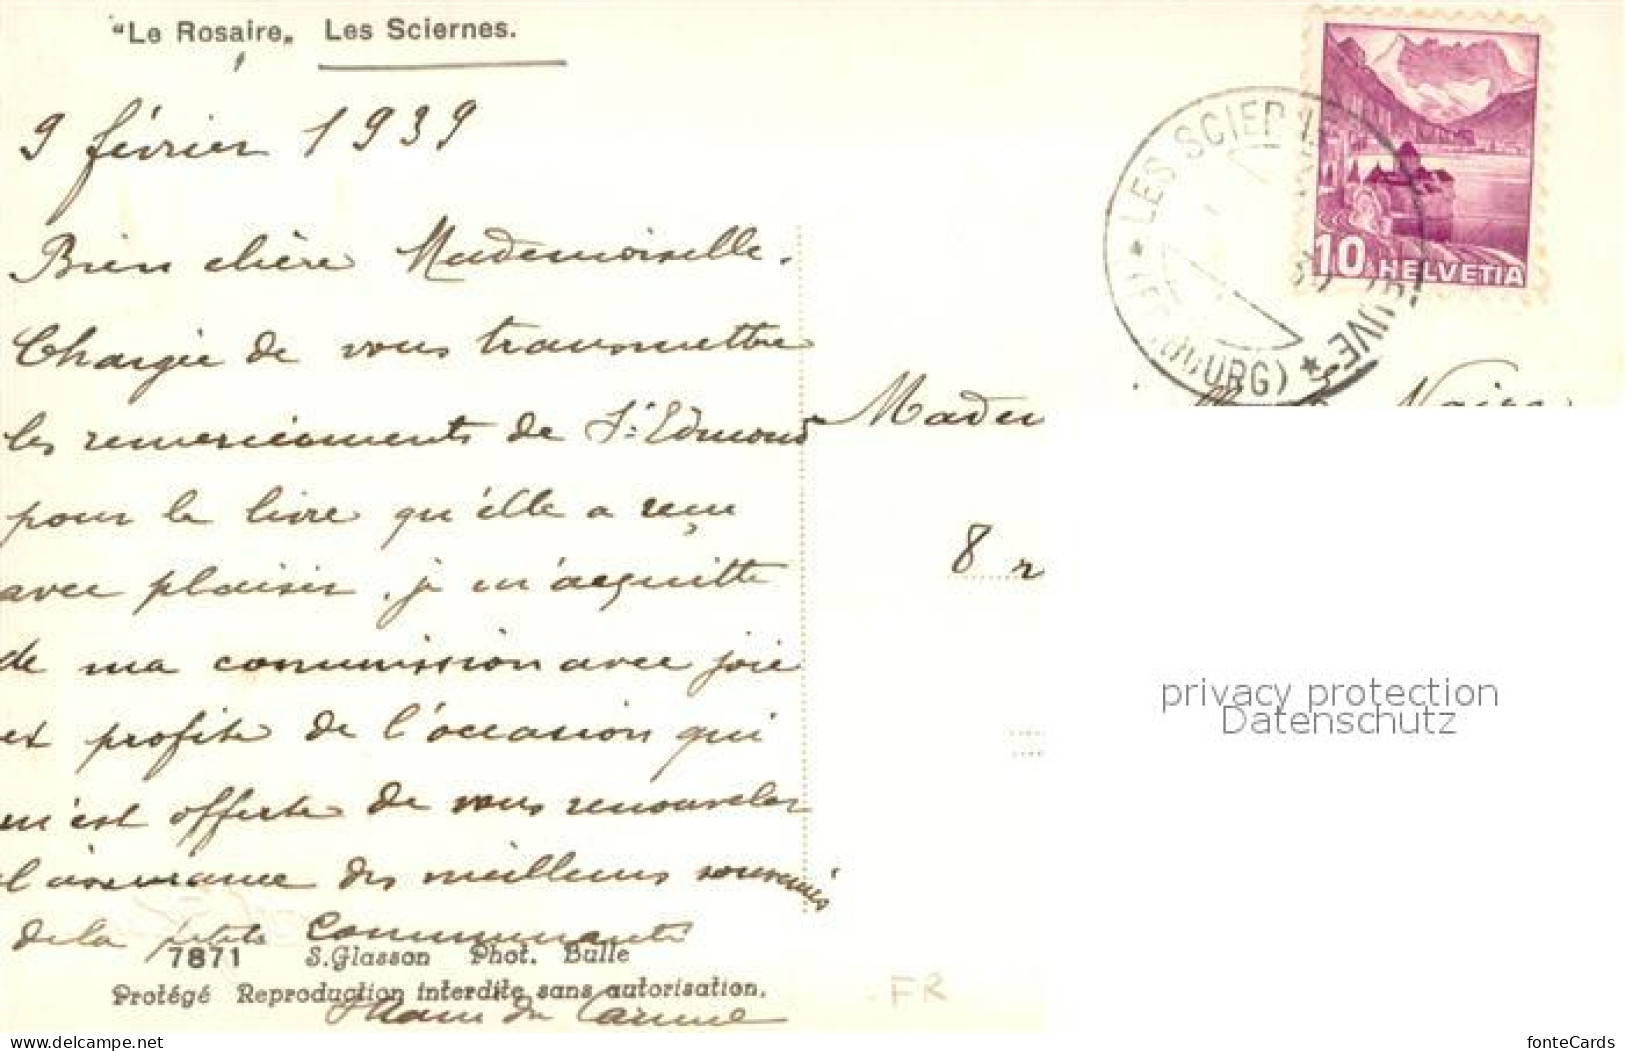 "Le Rosaire„ Les Sciernes.
9 février 1939
Bien chère Mademoiselle.
Chargée de vous transmettre
les remerciements de Sr Edmond
pour le livre qu'elle a reçu
avec plaisir, je m'acquitte
de ma commission avec joie
et profite de l'occasion qui
m'est offerte de vous renouveler
l'assurance des meilleurs souvenirs
de la petite Communauté
7871 S. Glasson Phot. Bulle
Protégé Reproduction interdite sans autorisation.
du Carmel
FR
LES SCIERN
UVE
OURG)
10 HELVETIA
8 r
privacy protection
Datenschutz
www.delcampe.net
fonteCards